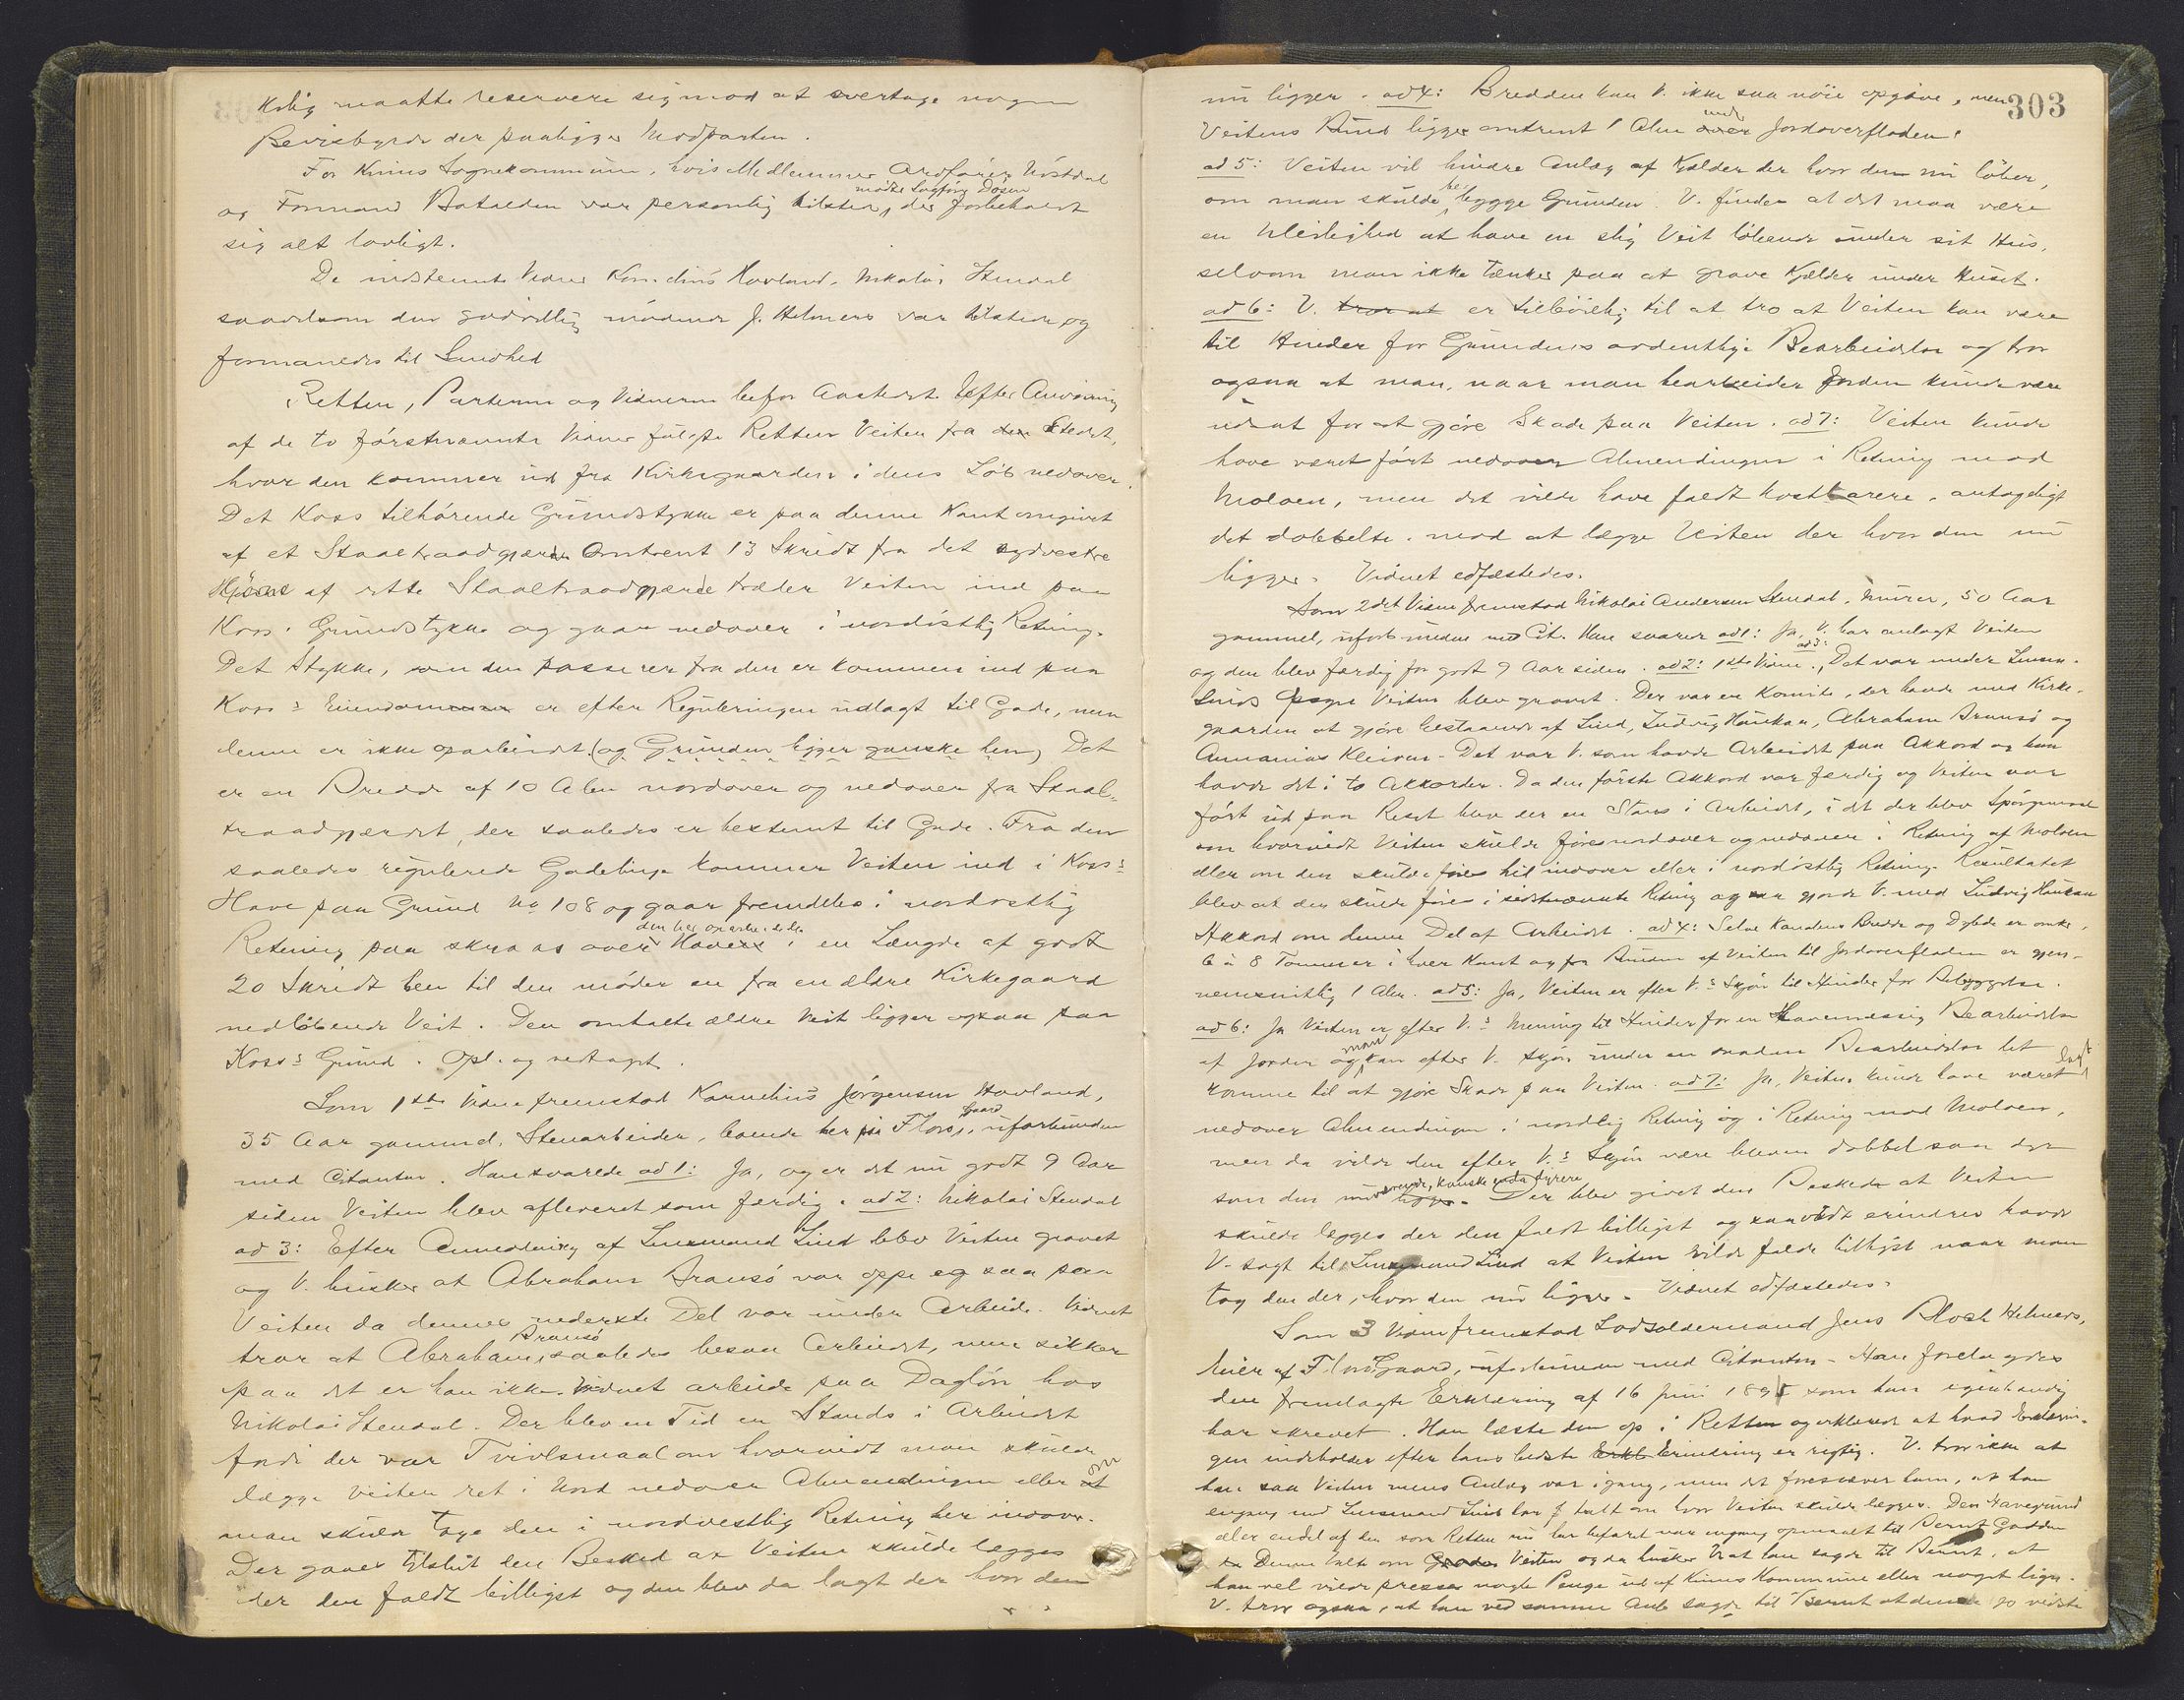 holig maatte reservere sig mod at overtage nogen
Bevisbyrde der paaligger Modparten.
For Kinns Sognekommune, hvis Medlemmer Ordfører Nöstdal
og Formand Batalden var personlig tilstede, mødte Sagfører Dosen der forbeholdt
sig alt lovligt.
De indstevnte Vidner Kornelius Hovland, Nikolai Stendal
saavelsom den godvillig mødende J. Helmers var tilstede og
formanedes til Sandhed
Retten, Parterne og Vidnerne befor Aastedet. Efter Anvisning
af de to förstnævnte Vidner fulgte Retten Veiten fra den Stedet,
hvor den kommer ud fra Kirkegaarden i dens Löb nedover.
Det Koss tilhörende Grundstykke er paa denne Kant omgivet
af et Staaltraadgjærde Omtrent 13 Skridt fra det sydvestre
Hjörne af dette Staaltraadgjærde træder Veiten ind paa
Koss's Grundstykke og gaar nedover i nordöstlig Retning.
Det Stykke, som den passerer fra den er kommen ind paa
Koss's Eiendommen er efter Reguleringen udlagt til Gade, men
denne er ikke oparbeidet (og Grunden ligger ganske hen) Det
er en Bredde af 10 Alen nordover og nedover fra Staal-
traadgjærdet, der saaledes er bestemt til Gade. Fra den
saaledes regulerede Gadelinje kommer Veiten ind i Koss's
Have paa Grund No 108 og gaar fremdeles i nordostlig
Retning paa skraas over den her oparbeidede Have i en Længde af godt
20 Skridt hen til den möder en fra en ældre Kirkegaard
nedlöbende Veit. Den omtalte ældre Veit ligger ogsaa paa
Koss's Grund. Opl. og vedtaget.
Som 1ste Vidne fremstod Kornelius Jörgensen Hovland,
35 Aar gammel, Stenarbeider, boende her paa Florö Gaard, uforbunden
med Citanten. Han svarede ad 1: Ja, og er det nu godt 9 Aar
siden Veiten blev afleveret som færdig. ad 2: Nikolai Stendal
ad 3: Efter Anmodning af Lensmand Lind blev Veiten gravet
og V. husker at Abraham Bransö var oppe og saa paa
Veiten da dennes nederste Del var under Arbeide. Vidnet
tror at Abraham Bransö saaledes besaa Arbeidet, men sikker
paa det er han ikke. Vidnet arbeide paa Daglön hos
Nikolai Stendal. Der blev en Tid en Stands i Arbeidet
fordi der var Tvivlsmaal om hvorvidt man skulde
lægge Veiten ret i Nord nedover Almendingen eller at om
man skulde tage den i nordvestlig Retning her indover.
Der gaves tilslut den Besked at Veiten skulde lægges
der den faldt billigst og den blev da lagt der hvor den
303
nu ligger. ad 4: Bredden kan V. ikke saa nöie opgive, men
Veitens Bund ligger omtrent 1 Alen over under Jordoverfladen.
ad 5: Veiten vil hindre Anlæg af Kjelder der hvor den nu löber,
om man skulde bebygge Grunden. V. finder at det maa være
en Uleilighed at have en slig Veit löbende under sit Hus,
selvom man ikke tænker paa at grave Kjelder under Huset.
ad 6: V. tror at er tilböielig til at tro at Veiten kan være
til Hinder for Grundens ordentlige Bearbeidelse og tror
ogsaa at man, naar man bearbeider Jorden kunde være
udsat for at gjöre Skade paa Veiten. ad 7: Veiten kunde
have været fört nedover Almendingen i Retning mod
Moloen, men det vilde have faldt kostbarere, antageligt
det dobbelte, mod at lægge Veiten der hvor den nu
ligger. Vidnet edfæstedes.
Som 2det Vidne fremstod Nikolai Andersen Stendal, Murer, 50 Aar
gammel, uforbunden med Cit. Han svarede ad 1: Ja, V. har anlagt Veiten
og den blev færdig for godt 9 Aar siden. ad 2: 1ste Vidne. ad 3: Det var under Lensm.
Linds Opsyn Veiten blev gravet. Der var en Komite, der havde med Kirke-
gaarden at gjöre bestaaende af Lind, Ludvig Haukaa, Abraham Bransö og
Annanias Kleiven. Det var V. som havde Arbeidet paa Akkord og han
havde det i to Akkorder. Da den förste Akkord var færdig og Veiten var
fört ud paa Reset blev der en Stans i Arbeidet, i det der blev Spörgsmaal
om hvorvidt Veiten skulde föres nordover og nedover i Retning af Moloen
eller om den skulde föres hid indover eller i nordöstlig Retning. Resultatet
blev at den skulde föres i sidstnævnte Retning og saa gjorde V. med Ludvig Haukaa
Akkord om denne Del af Arbeidet. ad 4: Selve Kanalens Bredde og Dybde er omkr.
6 à 8 Tommer i hver Kant og fra Bunden af Veiten til Jordoverfladen er gjen-
nemsnitlig 1 Alen. ad 5: Ja, Veiten er efter V.'s Skjön til Hinder for Bebyggelse.
ad 6: Ja Veiten er efter V.'s Mening til Hinder for en Havemæssig Bearbeidelse
af Jorden og man kan efter V. skjön under en saadan Bearbeidelse let
komme til at gjöre Skade paa Veiten. ad 7: Ja, Veiten kunde have været lagt
nedover Almendingen i nordlig Retning og i Retning mod Moloen,
men da vilde den efter V.'s Skjön være bleven dobbel saa dyr
som den nuværende, kanske enda dyrere ligger. Der blev givet den Besked at Veiten
skulde lægges der den faldt billigst og saavidt erindres havde
V. sagt til Lensmand Lind at Veiten vilde falde billigst naar man
tog den der, hvor den nu ligger. Vidnet edfæstedes.
Som 3 Vidne fremstod Lodsoldermand Jens Bloch Helmers,
Eier af Florö Gaard, uforbunden med Citanten. Han forelagdes
den fremlagte Erklæring af 16 Juni 189 som han egenhændig
har skrevet. Han læste den op i Retten og erklærede at hvad Erklærin-
gen indeholder efter hans bedste Erkl Erindring er rigtig. V. tror ikke at
han saa Veiten mens Anlæg var igang, men det foresvæver ham, at han
engang med Lensmand Lind har talt om hvor Veiten skulde lægges. Den Havegrund
eller endel af den som Retten nu har befaret var engang opmaalt til Bernt Gadden
Denne talte om Graden Veiten og da husker V. at han sagde til Bernt, at
han vel vilde presse nogle Penge ud af Kinns Kommune eller noget lign.
V. tror ogsaa, at han ved samme Anl. sagde til Bernt at denne jo vidste